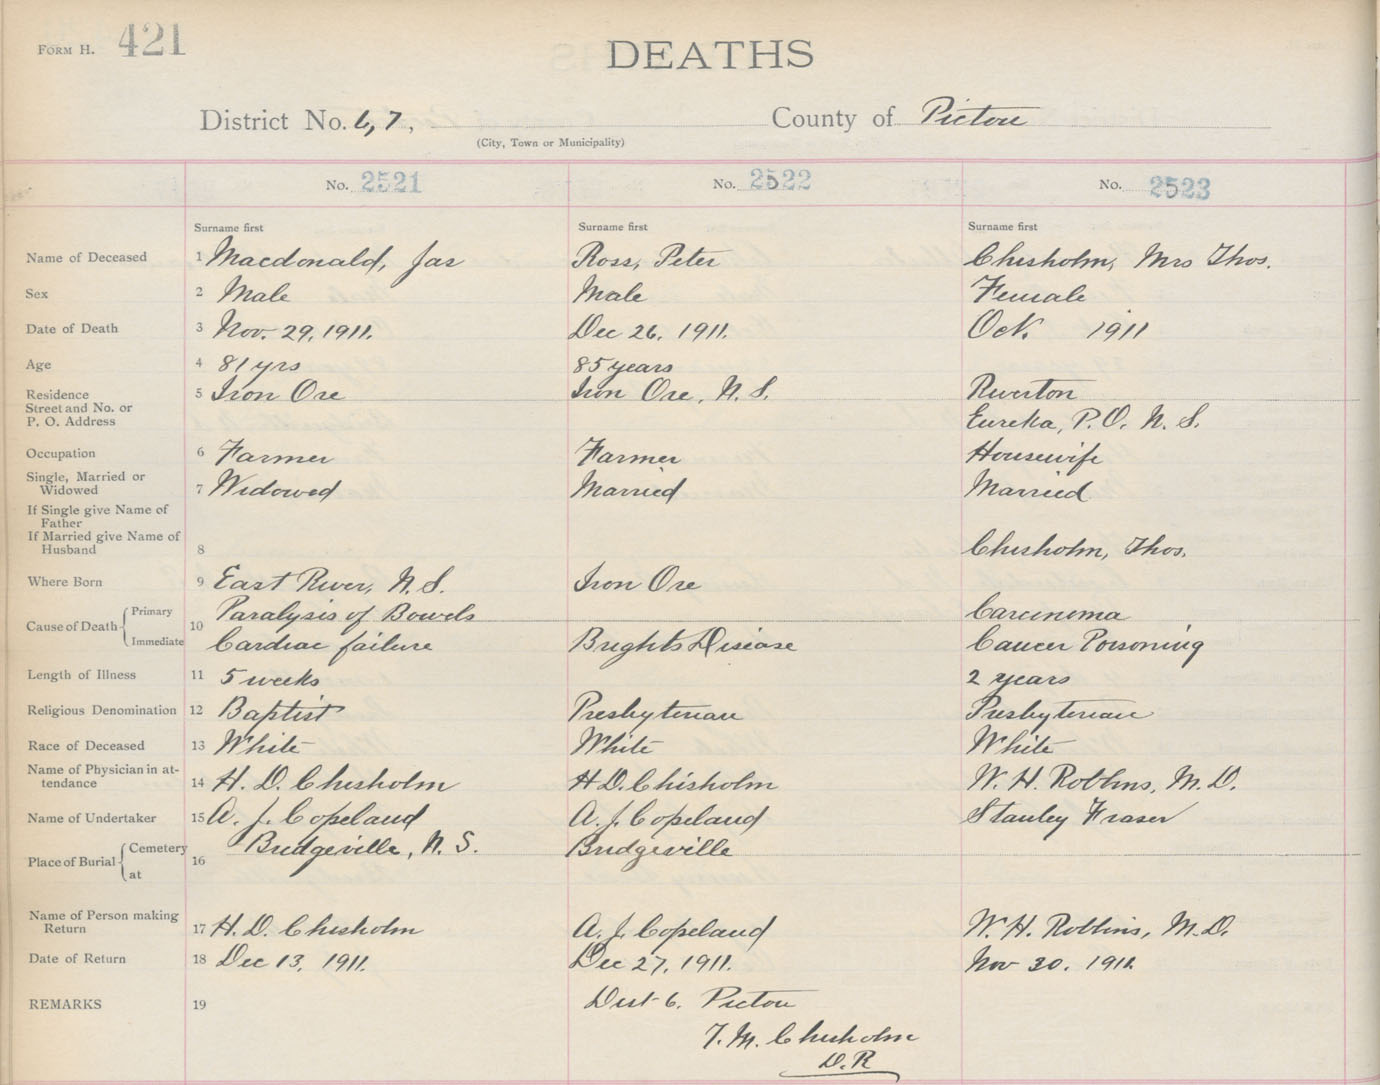 FORM H. 421
DEATHS
District No. 6, 7, County of Pictou
(City, Town or Municipality)
No. 2521 No. 2522 No. 2523
Surname first Surname first Surname first
Name of Deceased 1 Macdonald, Jas Ross, Peter Chisholm, Mrs Thos.
Sex 2 Male Male Female
Date of Death 3 Nov. 29, 1911. Dec 26, 1911. Oct. 1911
Age 4 81 yrs 85 years
Residence 5 Iron Ore Iron Ore, N. S. Riverton
Street and No. or
P. O. Address Eureka, P.O. N. S.
Occupation 6 Farmer Farmer Housewife
Single, Married or
Widowed 7 Widowed Married Married
If Single give Name of
Father
If Married give Name of
Husband 8 Chisholm, Thos.
Where Born 9 East River, N. S. Iron Ore
Cause of Death Primary 10 Paralysis of Bowels Carcinoma
Immediate Cardiac failure Brights Disease Cancer Poisoning
Length of Illness 11 5 weeks 2 years
Religious Denomination 12 Baptist Presbyterian Presbyterian
Race of Deceased 13 White White White
Name of Physician in at-
tendance 14 H. D. Chisholm H D. Chisholm W. H. Robbins, M. D.
Name of Undertaker 15 A. J. Copeland A. J. Copeland Stanley Fraser
Place of Burial Cemetery 16 Bridgeville, N. S. Bridgeville
at
Name of Person making
Return 17 H. D. Chisholm A. J. Copeland W. H. Robbins, M. D.
Date of Return 18 Dec 13, 1911. Dec 27, 1911. Nov 30. 1911.
REMARKS 19 Dist 6. Pictou
T. M. Chisholm
D. R